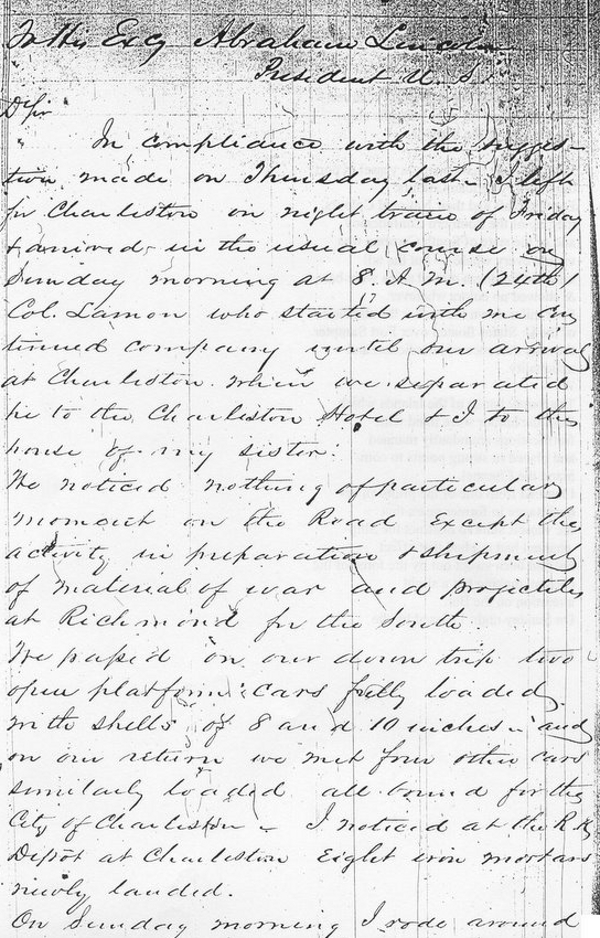 To His Excy Abraham Lincoln
President U. S.
D Sir
In compliance with the sugges-
tion made on Thursday last I left
for Charleston on night train of Friday
& arrived in the usual course on
Sunday morning at 8. A. M. (24th)
Col. Lamon who started with me con
tinued company until our arrival
at Charleston when we separated
he to the Charleston Hotel & I to the
house of my sister.
We noticed nothing of particular
moment on the Road except the
activity in preparation & shipment
of material of war and projectiles
at Richmond for the South
We passed on our down trip two
open platform cars fully loaded
with shells of 8 and 10 inches - and
on our return we met four other cars
similarly loaded all bound for the
City of Charleston - I noticed at the R R
Depôt at Charleston Eight iron mortars
newly landed.
On Sunday morning I rode around